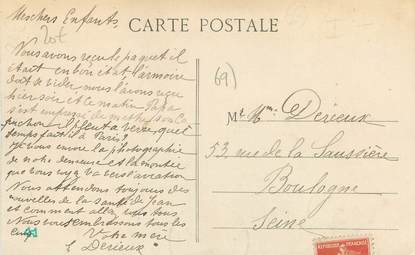 Mes chers Enfants,
CARTE POSTALE
Nous avons reçu le paquet il
était en bon état l'armoire
doit se vider, nous l'avons reçu
hier soir et ce matin Papa
s'est empressé de mettre son Ca
puchon il pleut a verse, quel
temps fait il à Paris?
Je vous envoie la photographie
de notre demeure et la montée
que vous
Nous attendons toujours des
nouvelles de la santé de Jean
et comment allez vous tous
Nous vous embrassons tous les
cinq Votre mère
Derieux
69)
Mr Mme Derieux
53, rue de la Saussière
Boulogne
Seine
REPUBLIQUE FRANÇAISE